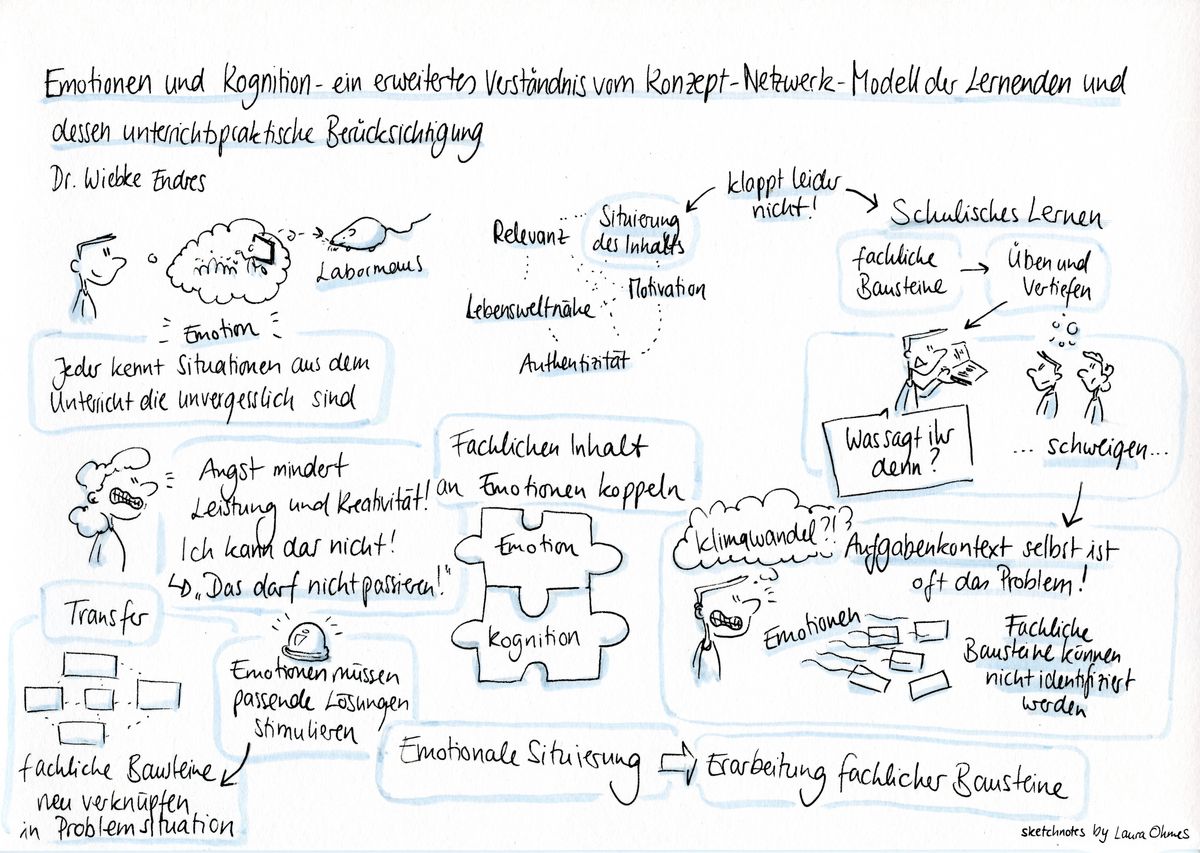 Emotionen und Kognition - ein erweitertes Verständnis vom Konzept-Netzwerk-Modell der Lernenden und
dessen unterrichtspraktische Berücksichtigung
Dr. Wiebke Endres
Labormaus
Emotion
Jeder kennt Situationen aus dem
Unterricht die unvergesslich sind
klappt leider
nicht!
Situierung
des Inhalts
Relevanz
Motivation
Lebensweltnähe
Authentizität
Schulisches Lernen
fachliche
Bausteine
Üben und
Vertiefen
Was sagt ihr
denn?
... schweigen...
Angst mindert
Leistung und Kreativität!
Ich kann das nicht!
↳ „Das darf nicht passieren!"
Fachlichen Inhalt
an Emotionen koppeln
Emotion
Kognition
Klimawandel?!?
Aufgabenkontext selbst ist
oft das Problem!
Emotionen
Fachliche
Bausteine können
nicht identifiziert
werden
Transfer
Emotionen müssen
passende Lösungen
stimulieren
fachliche Bausteine
neu verknüpfen
in Problemsituation
Emotionale Situierung ⇒ Erarbeitung fachlicher Bausteine
sketchnotes by Laura Ohmes